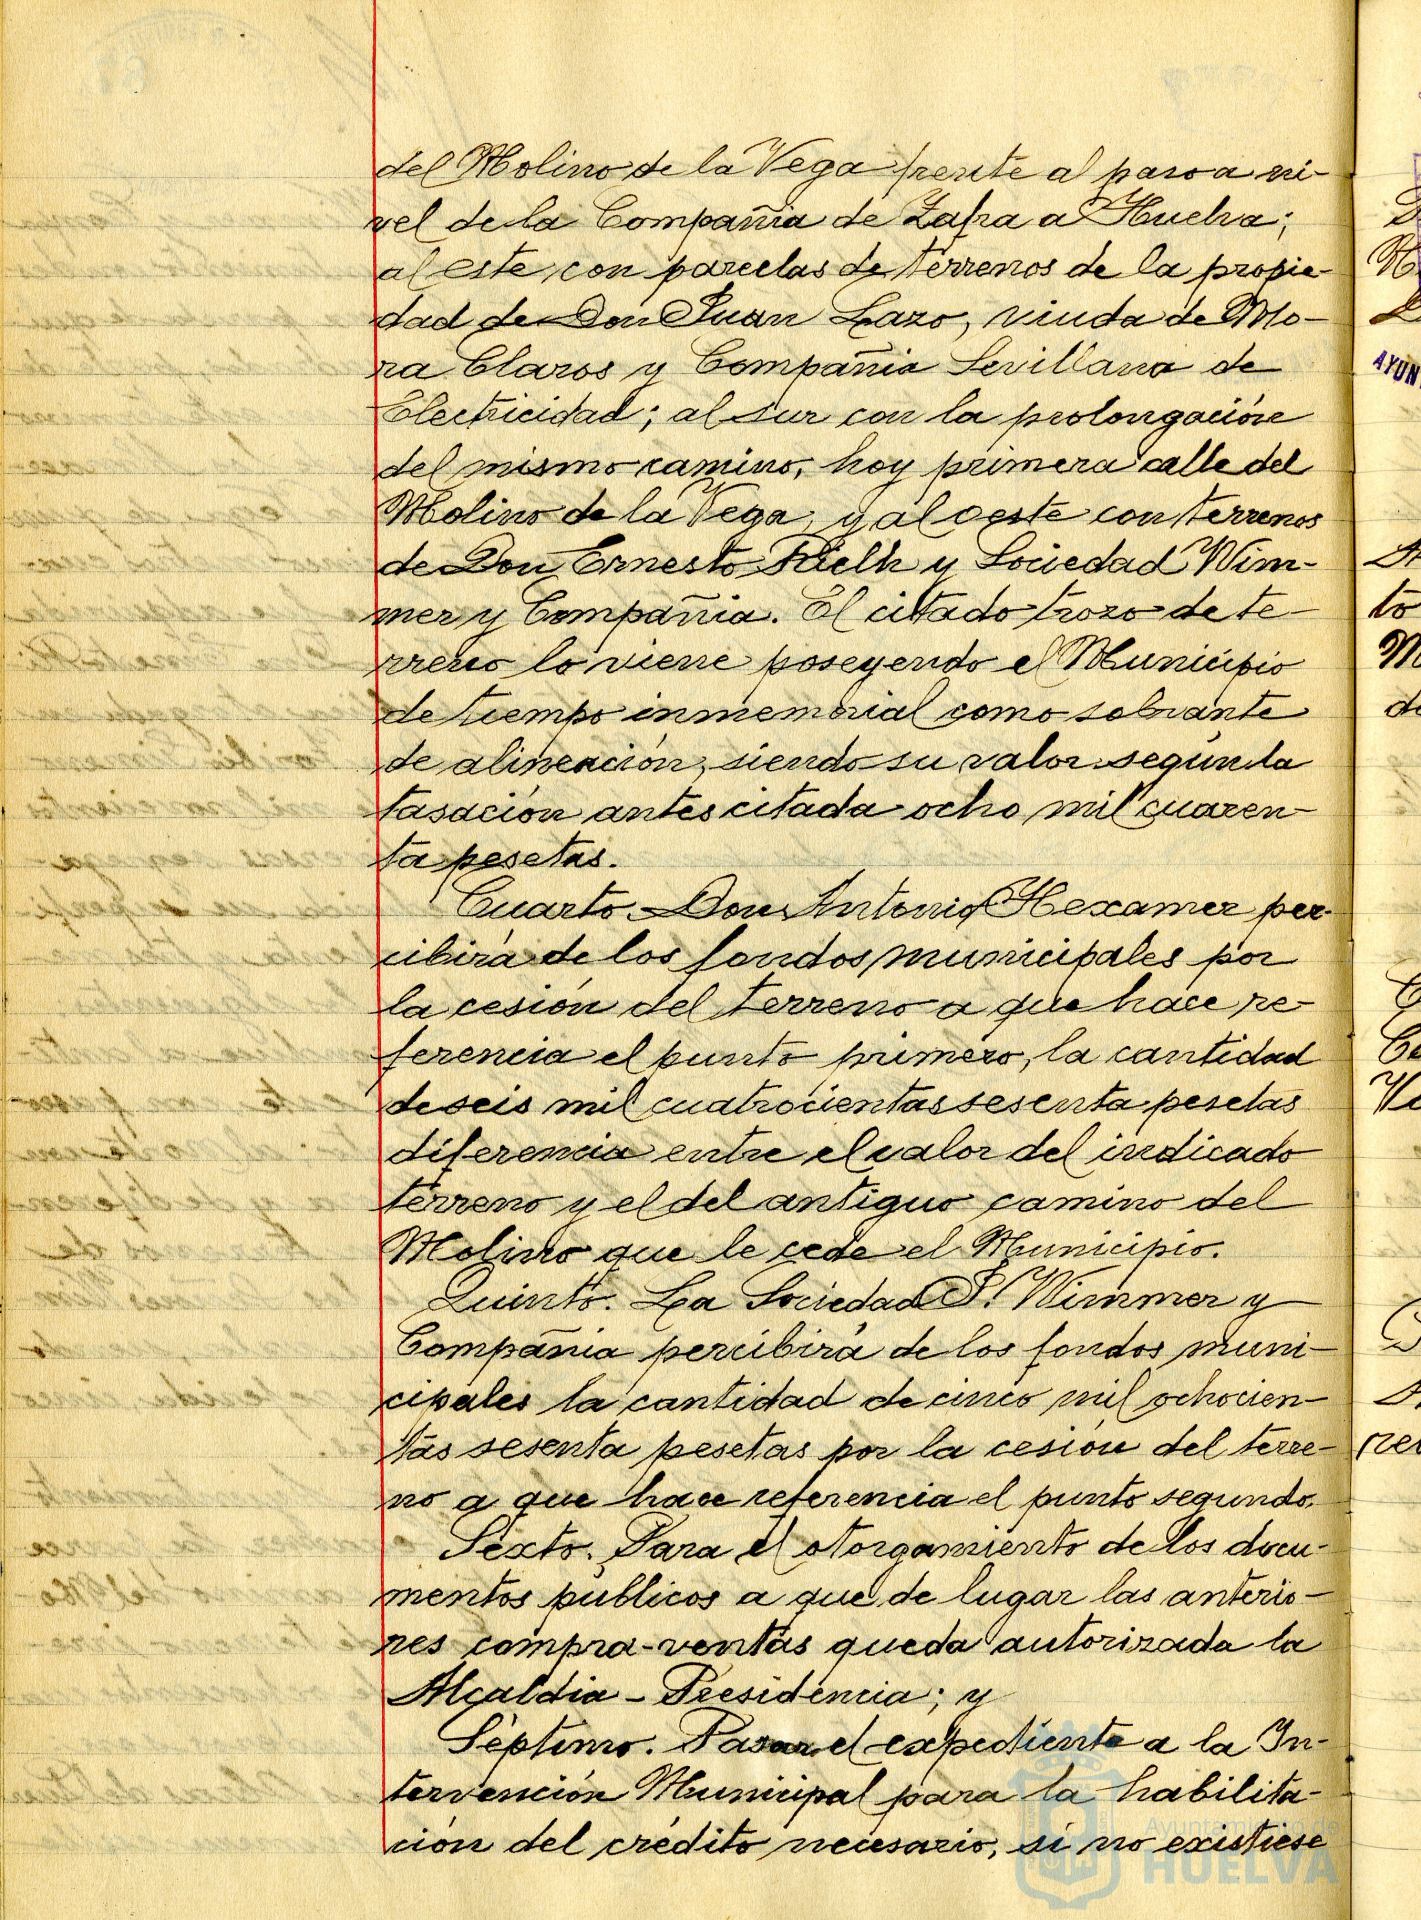 del Molino de la Vega frente al paso a ni-
vel de la Compañia de Zafra a Huelva;
al este, con parcelas de terrenos de la propie-
dad de Don Juan Lazo, viuda de Mo-
ra Claros y Compañia Sevillana de
Electricidad; al sur con la prolongación
del mismo camino, hoy primera calle del
Molino de la Vega, y al oeste con terrenos
de Don Ernesto Rielh y Sociedad Wim-
mer y Compañia. El citado trozo de te-
rreno lo viene poseyendo el Municipio
de tiempo inmemorial como sobrante
de alineación, siendo su valor según la
tasación antes citada ocho mil cuaren-
ta pesetas.
Cuarto. Don Antonio Hexamer per-
cibirá de los fondos municipales por
la cesión del terreno a que hace re-
ferencia el punto primero, la cantidad
de seis mil cuatrocientas sesenta pesetas
diferencia entre el valor del indicado
terreno y el del antiguo camino del
Molino que le cede el Municipio.
Quinto. La Sociedad P. Wimmer y
Compañia percibirá de los fondos muni-
cipales la cantidad de cinco mil ochocien-
tas sesenta pesetas por la cesión del terre-
no a que hace referencia el punto segundo.
Sexto. Para el otorgamiento de los docu-
mentos públicos a que de lugar las anterio-
res compra-ventas queda autorizada la
Alcaldia - Presidencia; y
Séptimo. Pasar el expediente a la In-
tervención Municipal para la habilita-
ción del crédito necesario, si no existiese
Ayuntamiento de
HUELVA